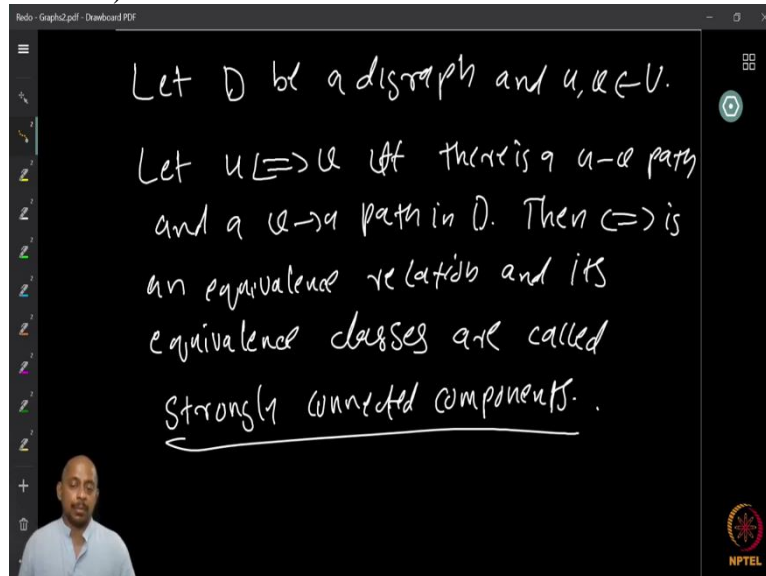 Redo - Graphs2.pdf - Drawboard PDF
Let D be a digraph and u, v ∈ V.
Let u <=> v iff there is a u-v path
and a v-u path in D. Then <=> is
an equivalence relation and its
equivalence classes are called
strongly connected components.
NPTEL